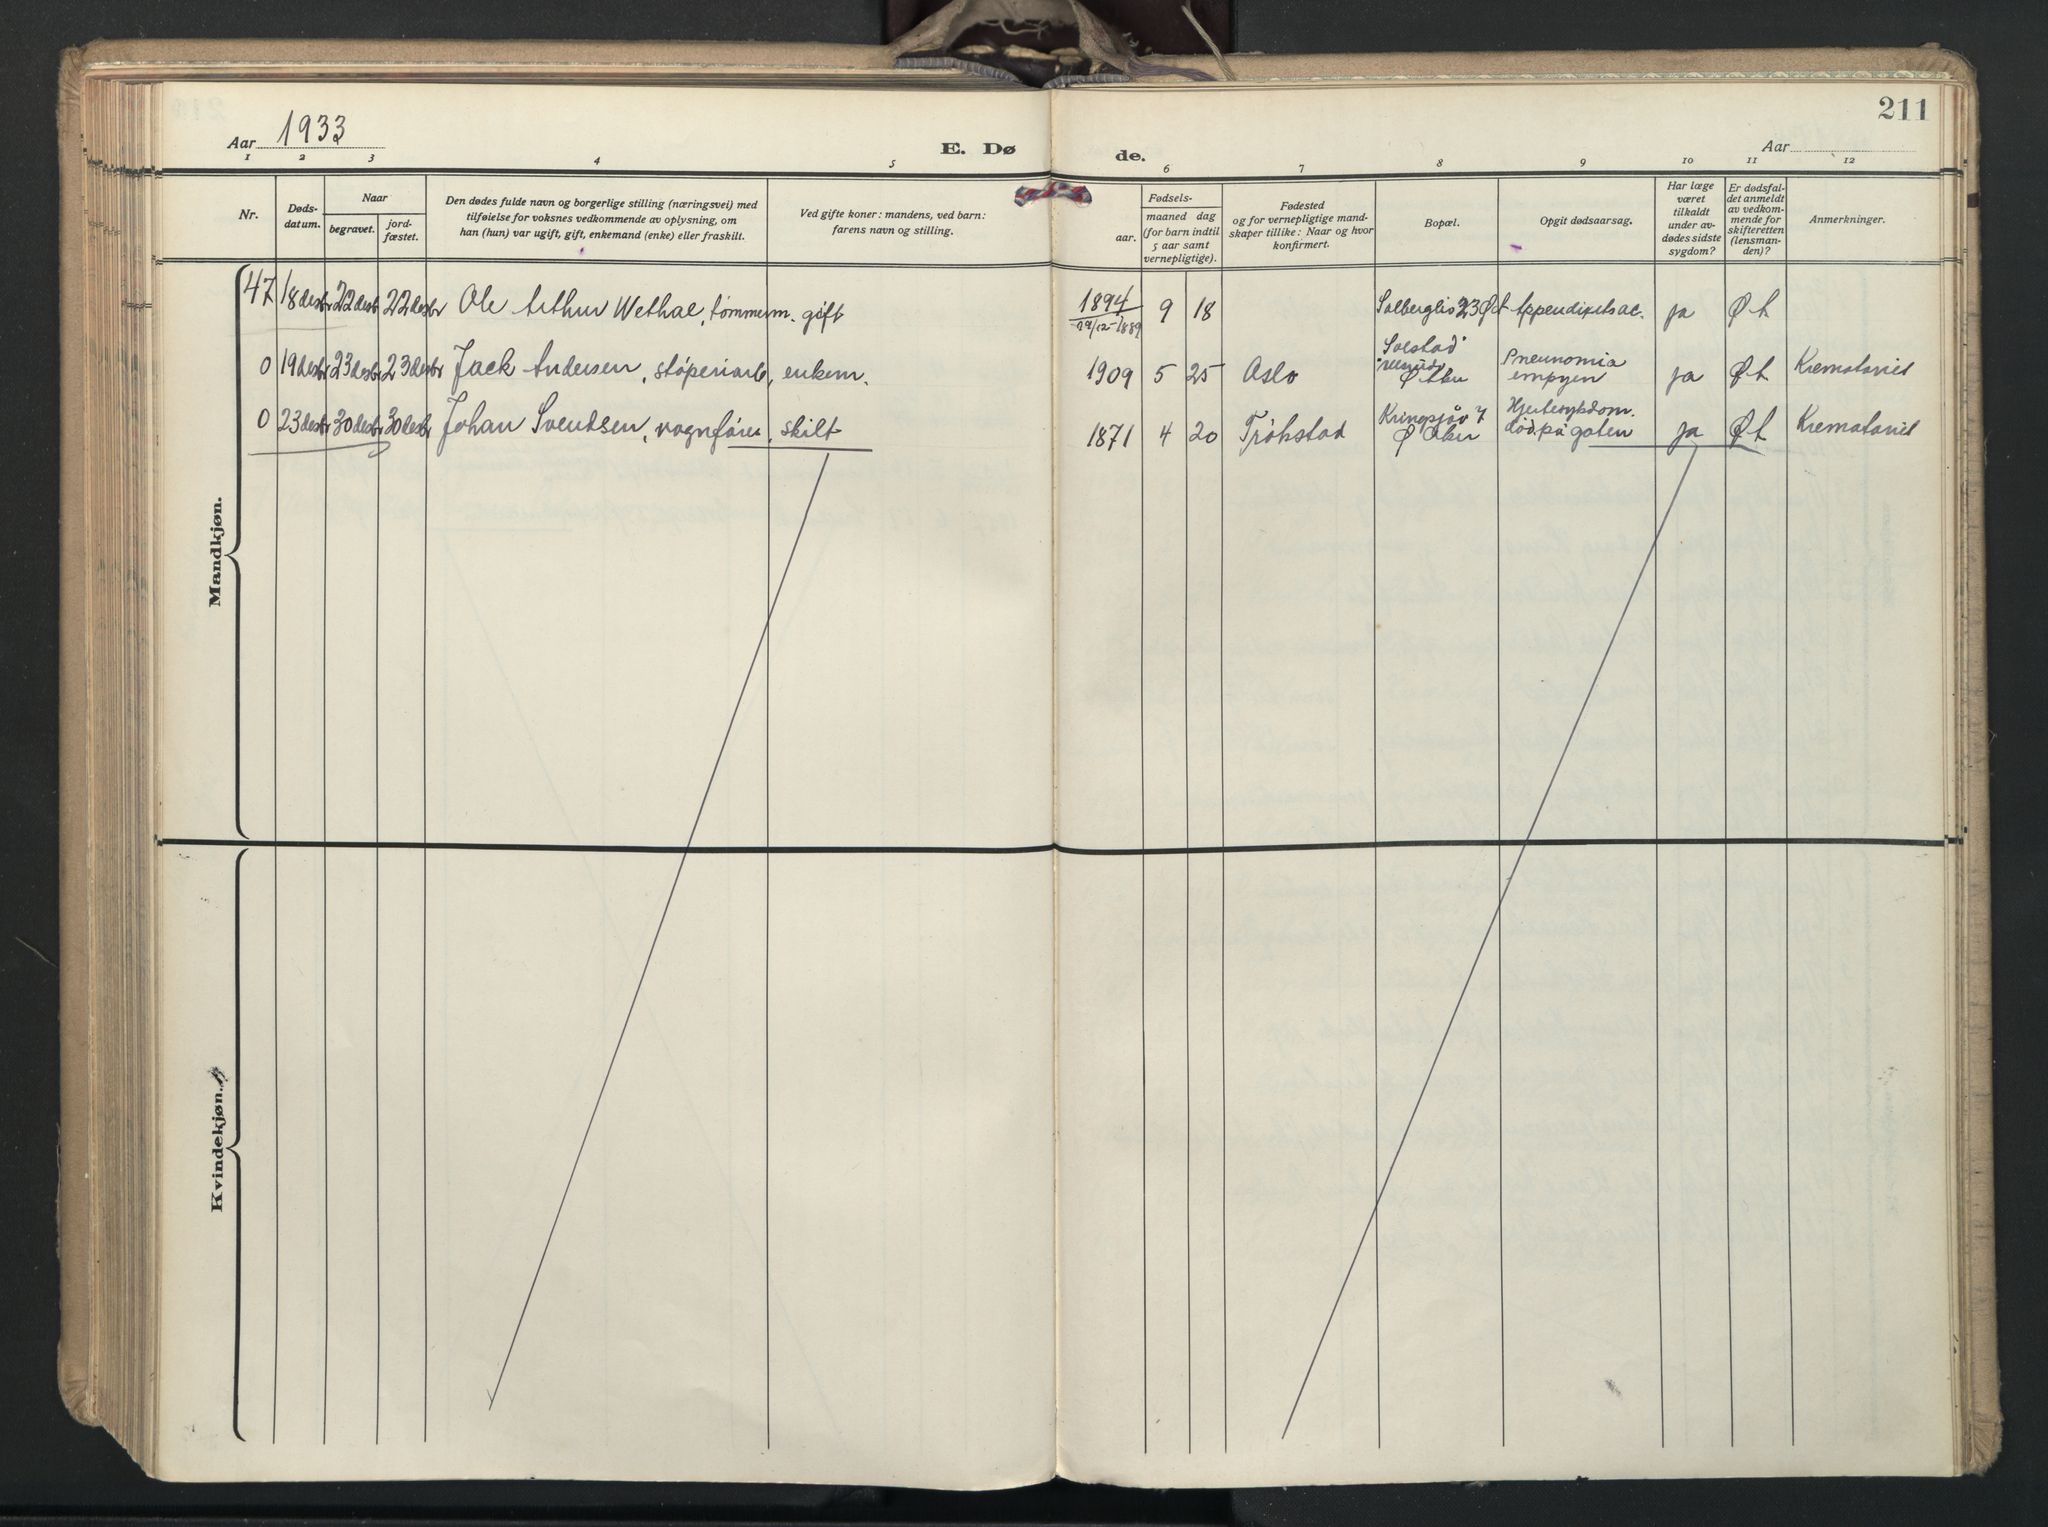 211
Aar 1933
E. Døde.
Aar
1 2 3 4 5 6 7 8 9 10 11 12
Nr.
Døds-
datum.
Naar
begravet.
jord-
fæstet.
Den dødes fulde navn og borgerlige stilling (næringsvei) med
tilføielse for voksnes vedkommende av oplysning, om
han (hun) var ugift, gift, enkemand (enke) eller fraskilt.
Ved gifte koner: mandens, ved barn:
farens navn og stilling.
Fødsels-
aar.
maaned dag
(for barn indtil
5 aar samt
vernepligtige).
Fødested
og for vernepligtige mand-
skaper tillike: Naar og hvor
konfirmert.
Bopæl.
Opgit dødsaarsag.
Har læge
været
tilkaldt
under av-
dødes sidste
sygdom?
Er dødsfal-
det anmeldt
av vedkom-
mende for
skifteretten
(lensman-
den)?
Anmerkninger.
Mandkjøn.
47 18 desbr 22 desbr 22 desbr Ole Arthur Wethal, tømmerm. gift 1894 9 18 Solberglia 23 Ø Appendixitsac. ja Ø A
29/12-1889
0 19 desbr 23 desbr 23 desbr Jack Andersen, støperiarb, enkem. 1909 5 25 Oslo Solstad Ø Aker Pneunomia empyen ja Ø A Krematoriet
0 23 desbr 30 desbr 30 desbr Johan Svendsen, vognfører, skilt 1871 4 20 Trøhstad Kringsjåv 7 Ø Aker Hjertesykdom. død på gaten ja Ø A Krematoriet
Kvindekjøn.